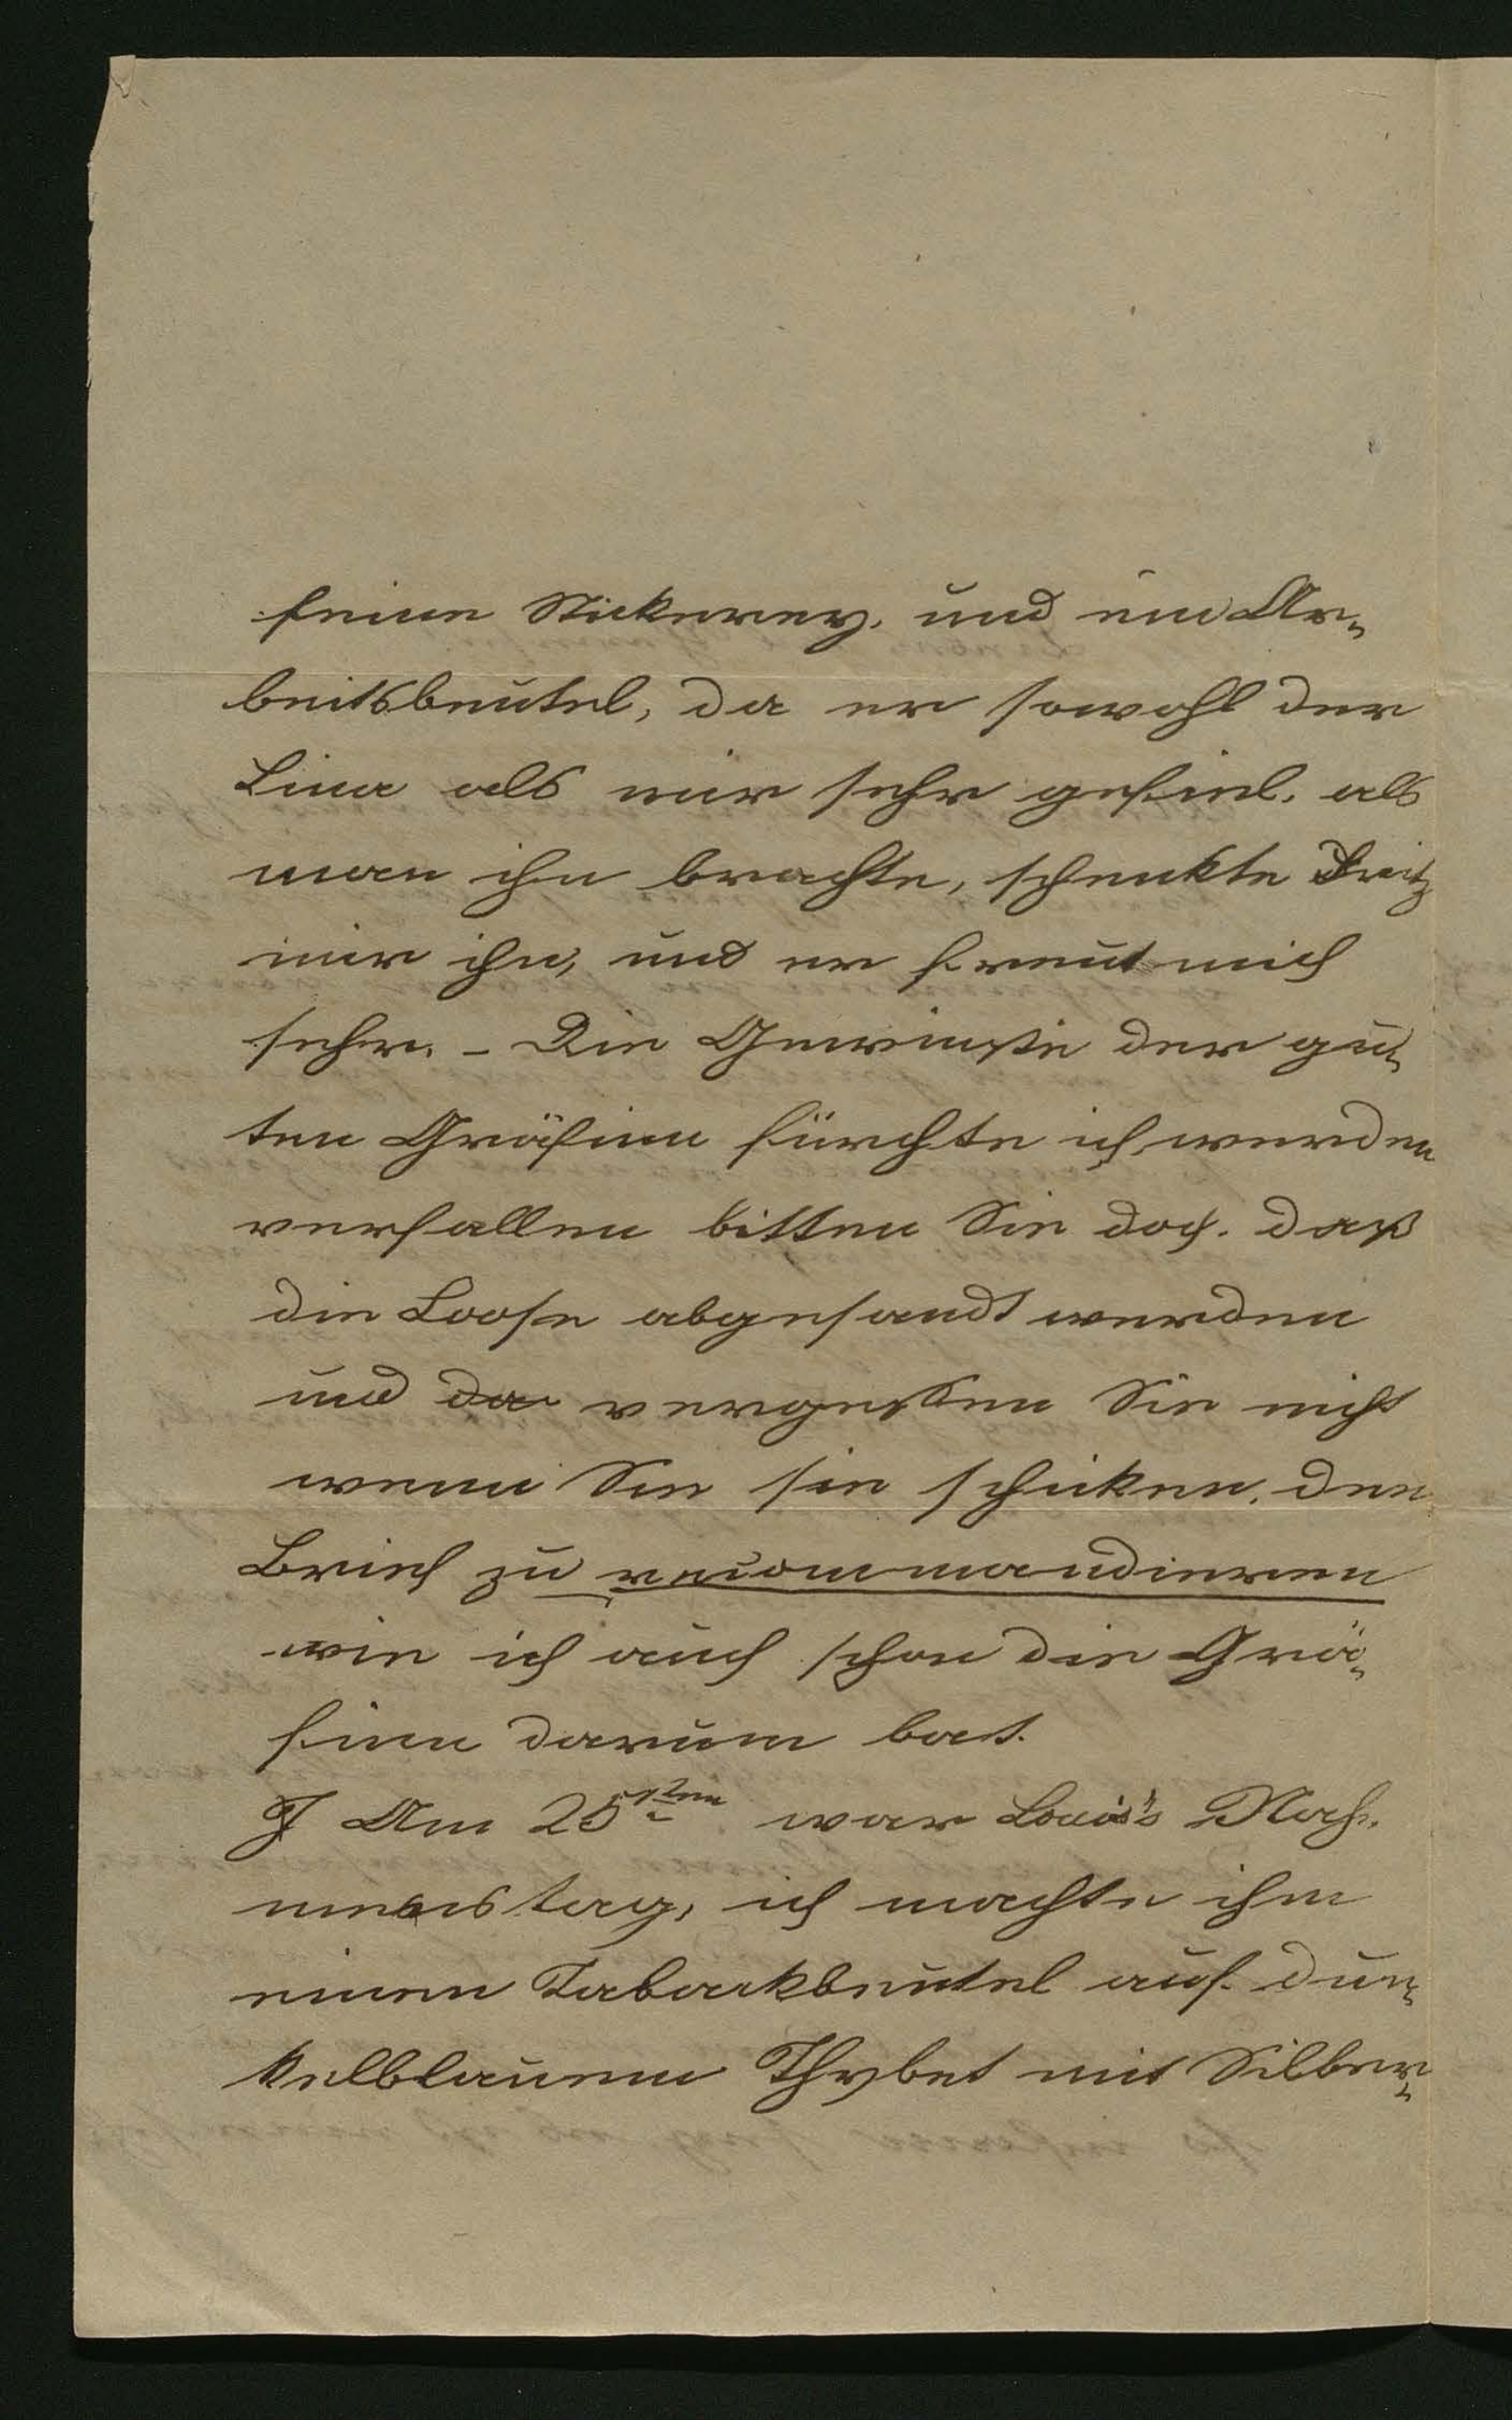 feine Stickerey. und ein Ar-
beitsbeutel, da er sowohl der
Lina als mir sehr gefiel, als
man ihn brachte, schenkte Fritz
mir ihn, und er freut mich
sehr. – Die Gewinste der gu-
ten Gräfinn fürchte ich werden
verfallen bitten Sie doch. daß
die Loose abgesandt werden
und da vergessen Sie nicht
wenn Sie sie schicken, den
Brief zu recommandieren
wie ich auch schon die Grä-
finn darum bat.
Am 25sten war Louis's Nah-
menstag, ich machte ihm
einen Tabackbeutel auf dun-
kelblauem Thybet mit Silber-